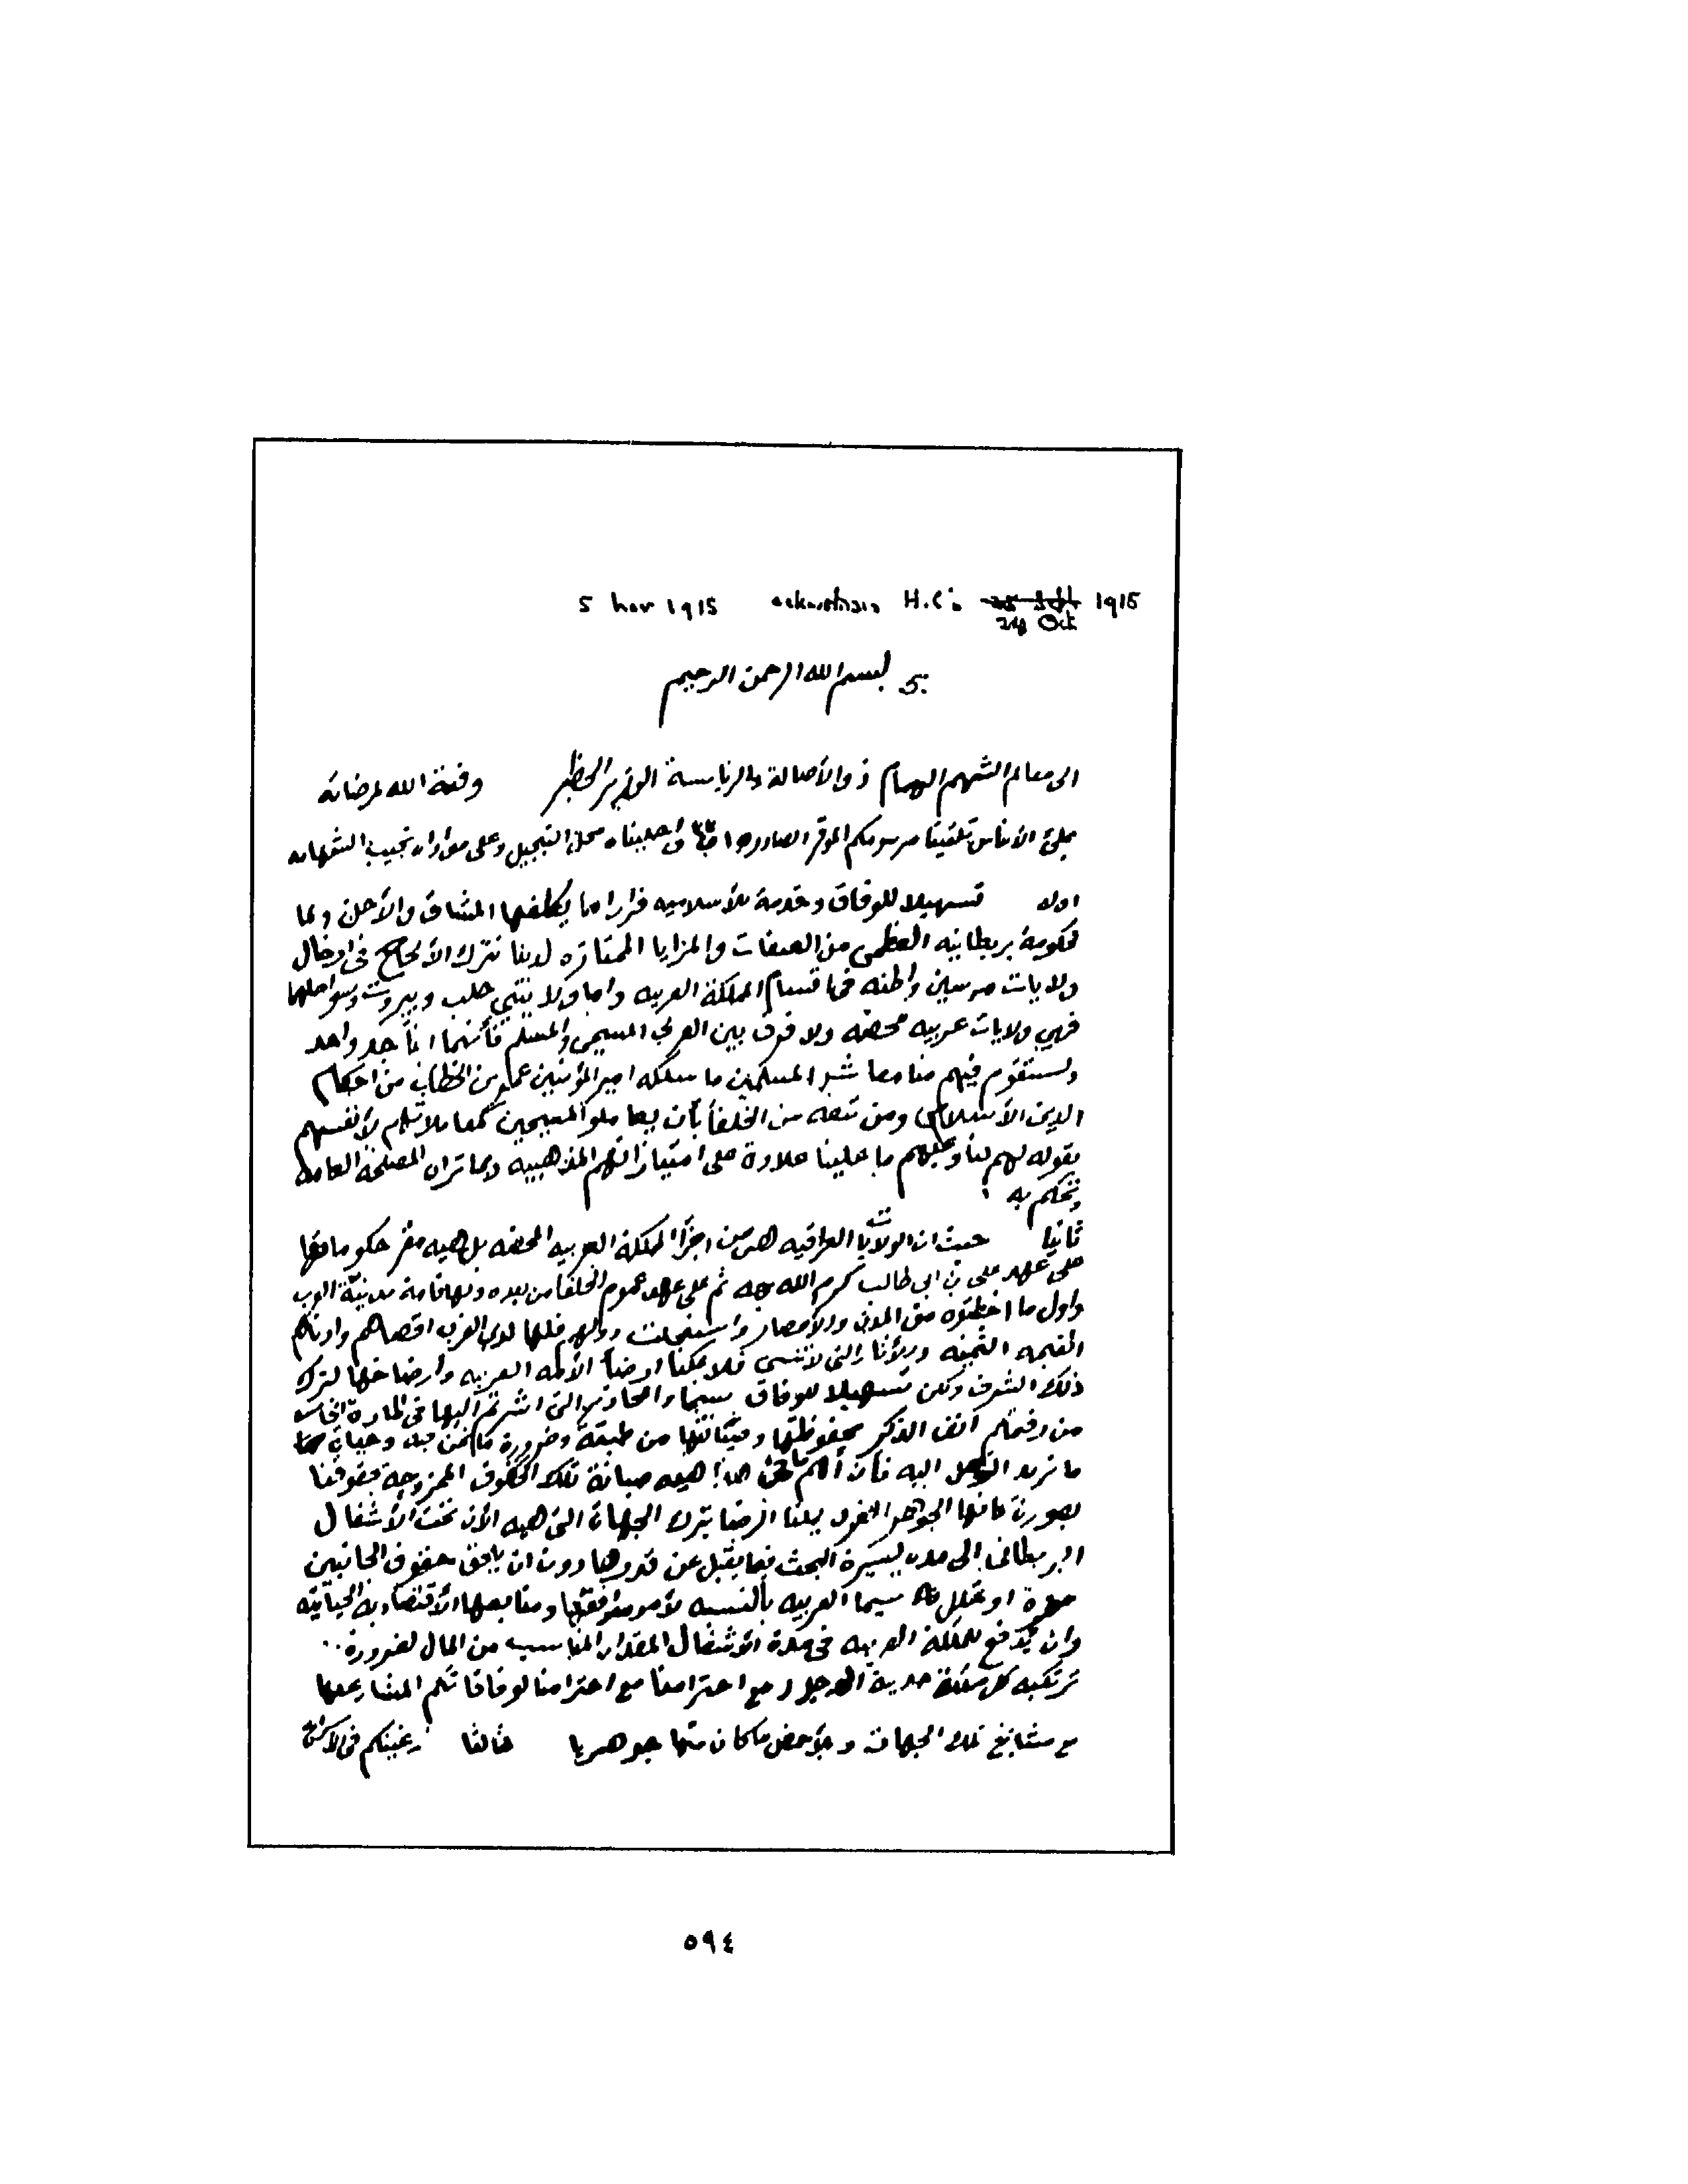 5 Nov 1915 H.C's 24 Oct 1915
بسم الله الرحمن الرحيم
الى معالم الشهم الهمام ذو الأصالة والرياسة الوزير الخطير وفقه الله لمرضاته
بملئ الأيناس تلقينا مرسومكم الموقر الصادر محل التبجيل وعلى
اولا تسهيلا للوفاق وخدمة للأسلاميه فرارا مما يكلفها المشاق والأحن ولما
لحكومة بريطانيه العظمى من الصفات والمزايا الممتازه لدينا نترك الألحاح فى ادخال
ولايات مرسين واطنه فى اقسام المملكة العربيه واما ولايتي حلب وبيروت وسواحلها
فهي ولايات عربيه محضه ولا فرق بين العربى المسيحى والمسلم فأنهما ابنا جد واحد
ولستقوم فيهم منا معاشر المسلمين ما سلكه امير المؤمنين عمر بن الخطاب من احكام
الدين الأسلامى ومن تبعه من الخلفا بأن يعاملو المسيحين كمعاملاتهم لأنفسهم
بقوله لهم لنا وعليهم ما علينا علاوة على امتيازاتهم المذهبيه وبما تراه المصلحة العامه
وتحكم به
ثانيا حيث ان الولايات العراقيه هى من اجزأ المملكة العربيه المحضه بل هيه مقر حكوماتها
على عهد على بن ابى طالب كرم الله وجهه ثم على عهد عموم الخلفا من بعده وبها قامة مدنيّة العرب
واول ما اختطوه من المدن والأمصار واستفحلت دولهم فلها لدى العرب اقصاهم وادناهم
القيمه الثمينه والتى لا تنسى فلا يمكنا ارضأ الأمه العربيه وارضاخها لترك
ذلك الشرف ولكن تسهيلا للوفاق سيما والمحاذير التى اشرتم اليها فى المادة الخامسه
من رقيمكم آنف الذكر محفوظتها وصيانتها من طبيعة وضرورة
ما نريد التوصل اليه فأن أهم ما فى هذا هيه صيانة تلك الحقوق الممزوجة بحقوقنا
بصورة كانها الجوهر الفرد يمكنا الرضا بترك الجهات التى هيه الأن تحت الأشغال
البريطانى الى مده يسيرة البحث فيما يقبل عن قدرها دون ان يلحق حقوق الجانبين
مضرة او خلل سيما العربيه بالنسبه لأمر مرافقها ومنابعها الأقتصاديه الحياتيّه
وان يدفع للمملكة العربيه فى مدة الأشغال المقدار المناسب من المال لضرورة..
ترتكبه كل مملكة حديثة الوجود مع احترامنا لوفاقاتكم المشار عليها
مع مشايخ تلك الجهات وبالأخص ما كان منها جوهريا ثالثا رغبتكم فى
٥٩٤